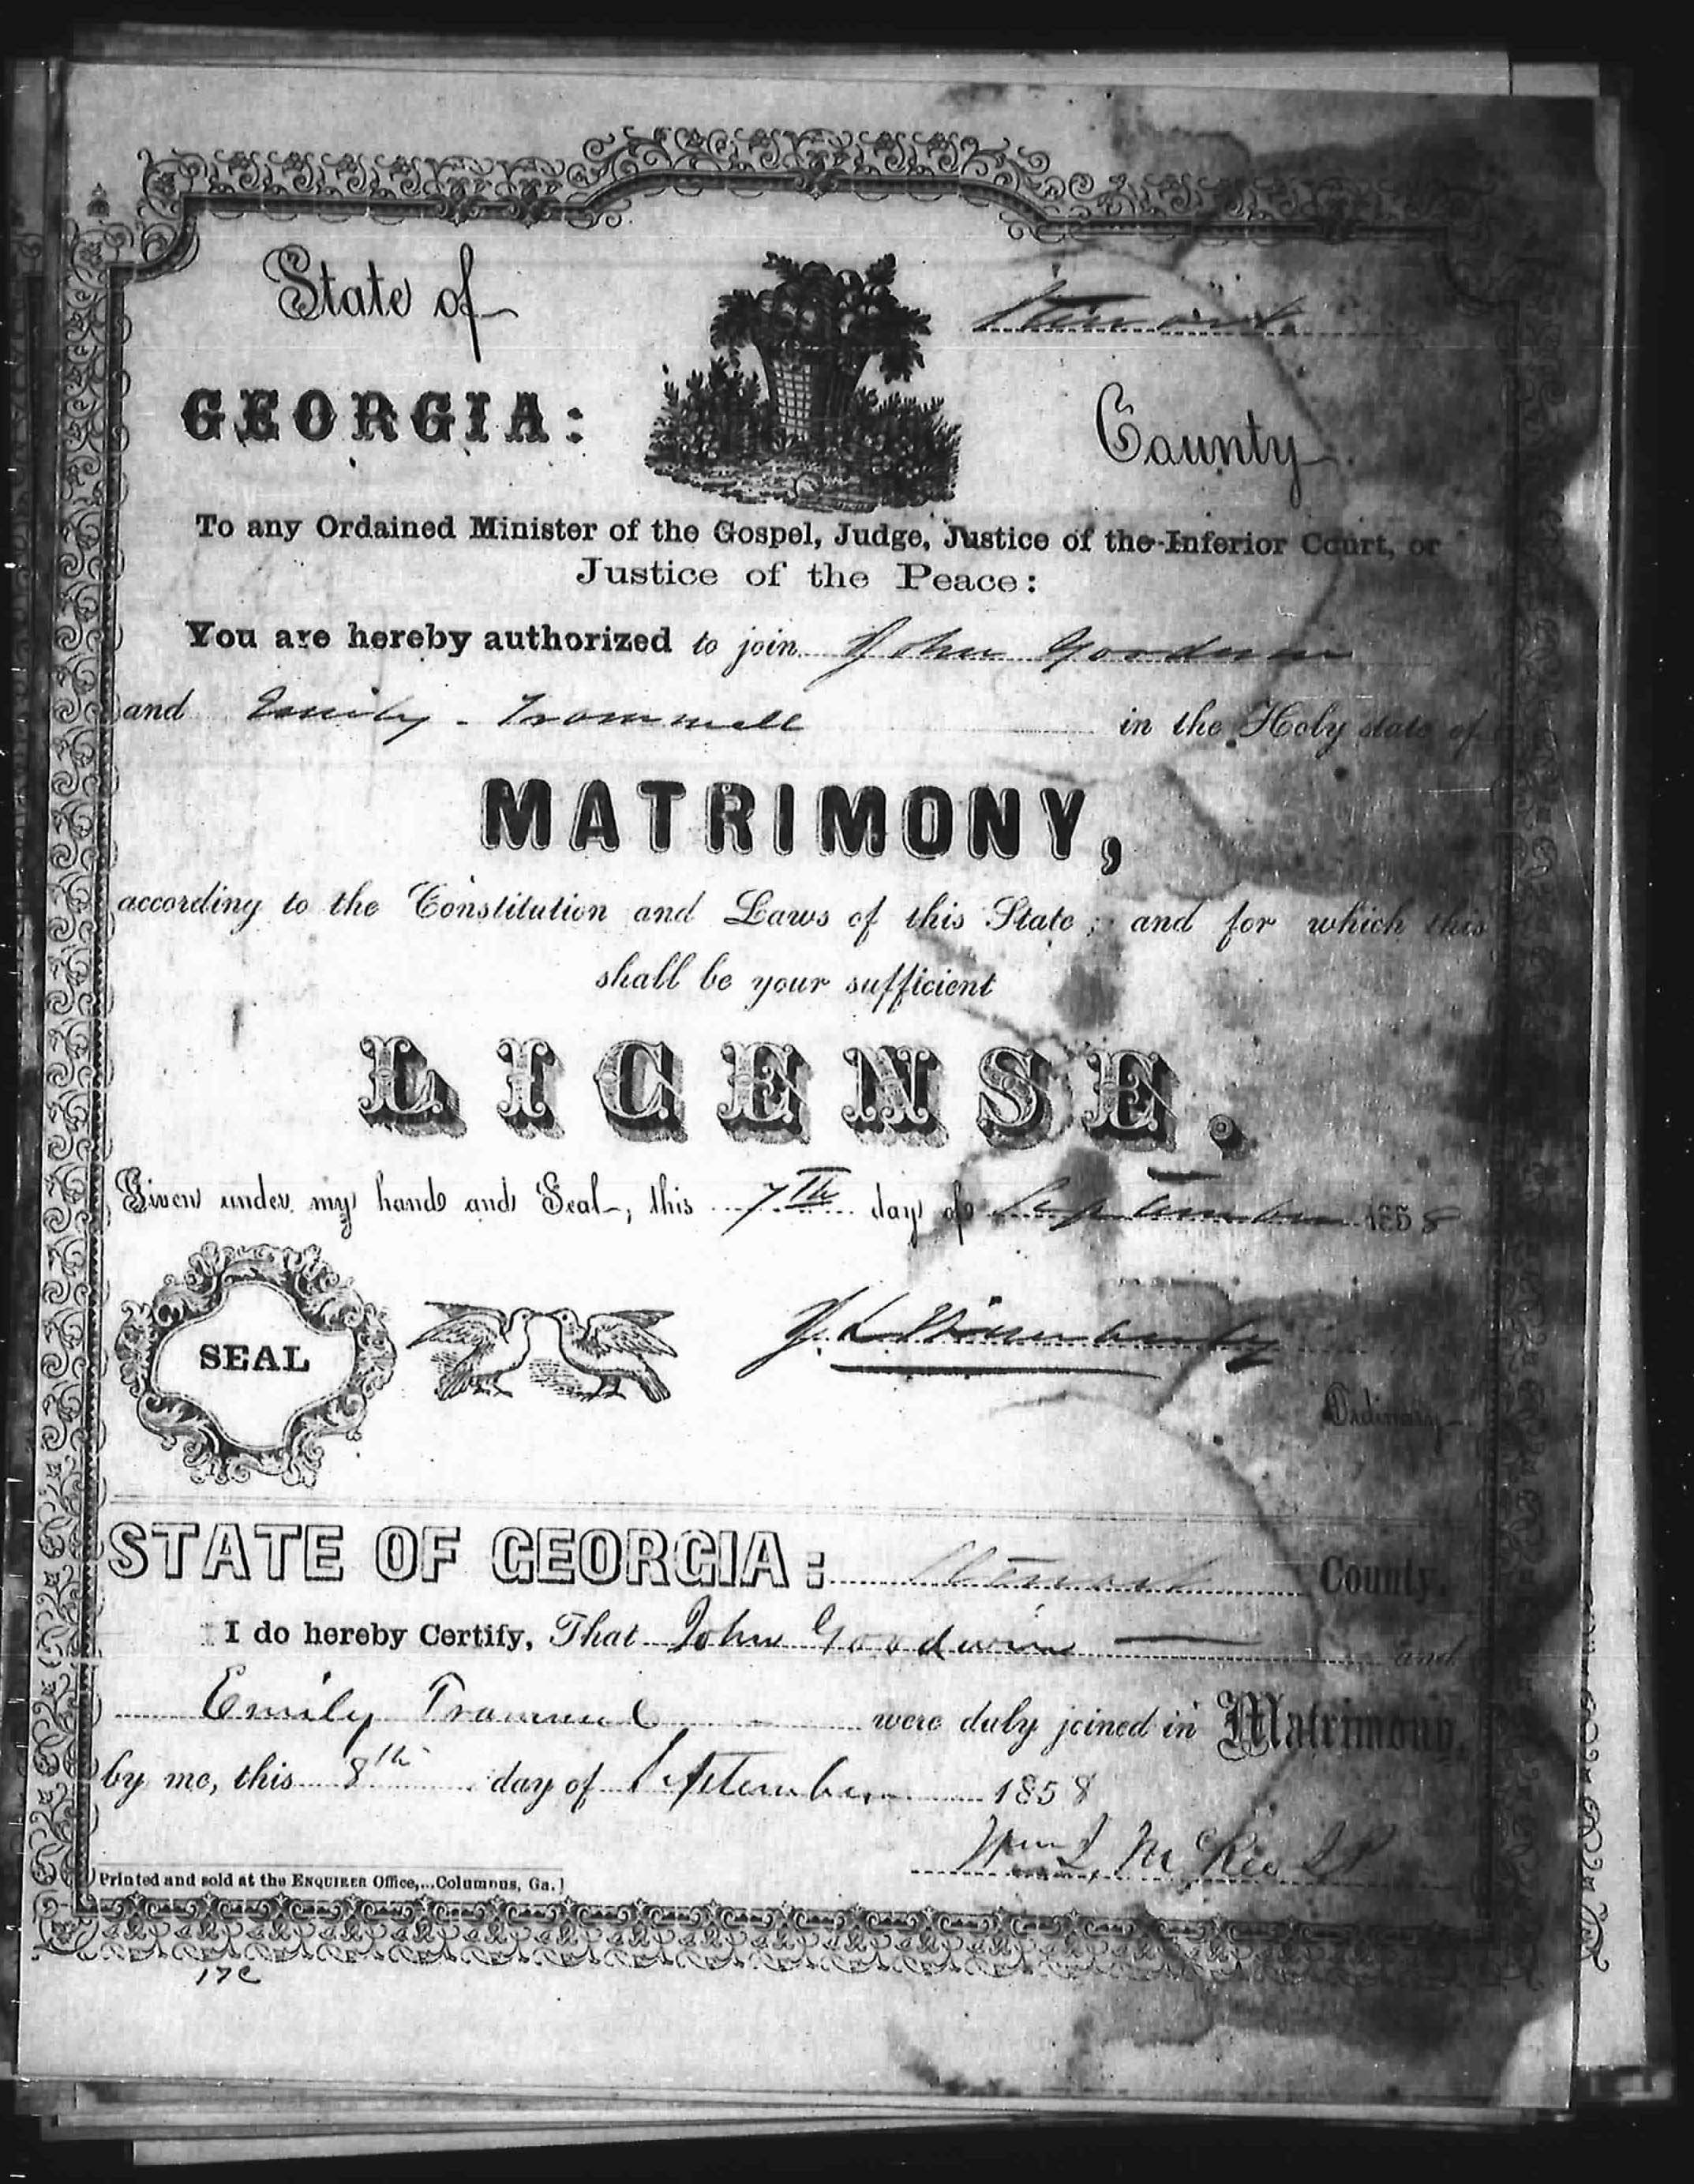 State of
Stewart
GEORGIA:
County
To any Ordained Minister of the Gospel, Judge, Justice of the Inferior Court, or
Justice of the Peace:
You are hereby authorized to join John Goodwin
and Emily - Trammell in the Holy state of
MATRIMONY,
according to the Constitution and Laws of this State; and for which this
shall be your sufficient
LICENSE.
Given under my hand and Seal, this 7th day of September 1858
SEAL
J. L. Wimberly
Ordinary
STATE OF GEORGIA: Stewart County.
I do hereby Certify, That John Goodwin and
Emily Trammel were duly joined in Matrimony,
by me, this 8th day of September 1858
Wm McRee JP
Printed and sold at the ENQUIRER Office,...Columnus, Ga.]